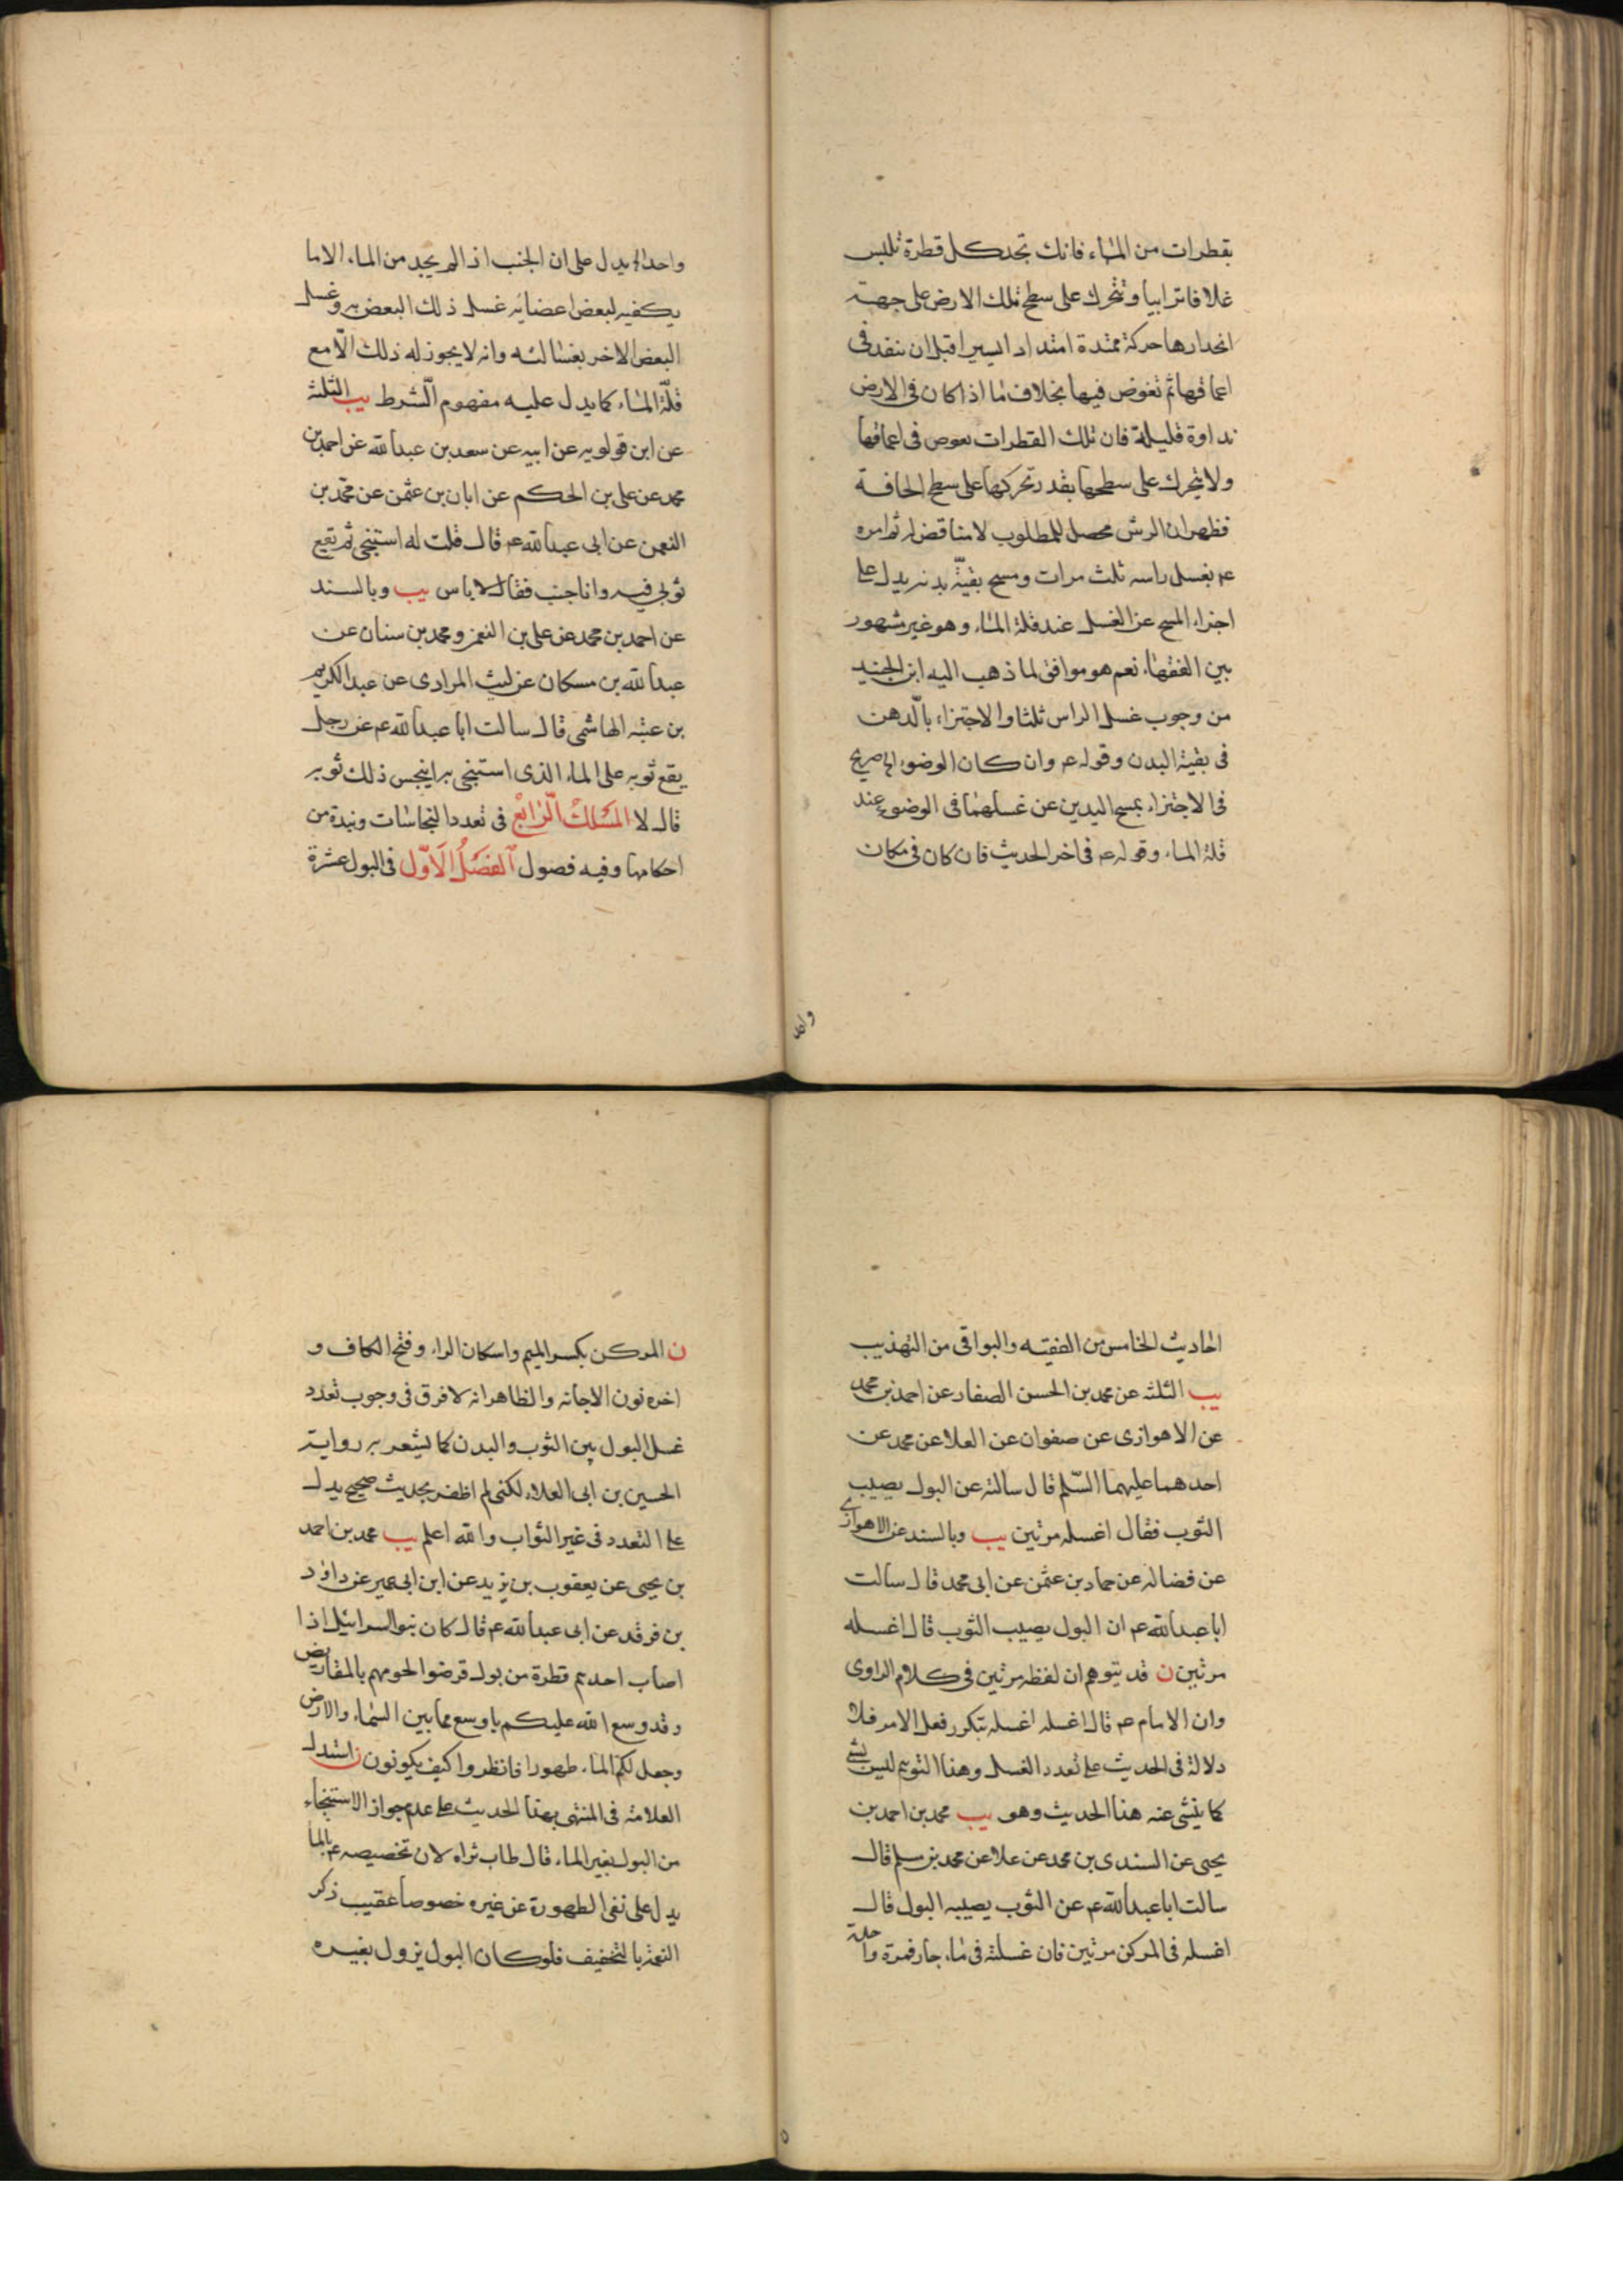 بقطرات من الماء فانك تجد كل قطرة تلبس
غلافا ترابيا وتتحرك على سطح تلك الارض على جهة
انحدارها حركة ممتدة امتدادا يسيرا قبل ان ينفذ فى
اعماقها ثم تغوص فيها بخلاف ما اذا كان فى الارض
نداوة قليلة فان تلك القطرات تغوص فى اعماقها
ولا تتحرك على سطحها بقدر تحركها على سطح الجافة
فظهر ان الرش محصل للمطلوب لا مناقض له ثم امره
ع بغسل راسه ثلث مرات ومسح بقيّة بدنه يدل على
اجزاء المسح عن الغسل عند قلة الماء وهو غير مشهور
بين الفقهاء نعم هو موافق لما ذهب اليه ابن الجنيد
من وجوب غسل الراس ثلثا والاجتزاء بالّدهن
فى بقية البدن وقوله ع وان كان الوضوء الخ صريح
فى الاجتزاء بمسح اليدين عن غسلهما فى الوضوء عند
قلة الماء وقوله ع فى اخر الحديث فان كان فى مكان
واحد
واحد الخ يدل على ان الجنب اذا لم يجد من الماء الا ما
يكفيه لبعض اعضائه غسل ذلك البعض به وغسل
البعض الاخر بغسالته وانه لا يجوز له ذلك الّا مع
قلّة الماء كما يدل عليه مفهوم الّشرط يب الثلثة
عن ابن قولويه عن ابيه عن سعد بن عبدالله عن احمد بن
محمد عن على بن الحكم عن ابان بن عثمن عن محمد بن
النعمن عن ابى عبدالله ع قال قلت له استنجى ثم يقع
ثوبى فيه وانا جنب فقال لا باس يب وبالسند
عن احمد بن محمد عن على بن النعمن ومحمد بن سنان عن
عبدالله بن مسكان عن ليث المرادى عن عبدالكريم
بن عتبه الهاشمى قال سالت ابا عبدالله ع عن رجل
يقع ثوبه على الماء الذى استنجى به اينجس ذلك ثوبه
قال لا المَسْلَكْ الّرابِع فى تعدد النجاسات ونبذة من
احكامها وفيه فصول اَلفَصَلُ الاَوّل فى البول عشرة
احاديث الخامس من الفقيه والبواقى من التهذيب
يب الثلثه عن محمد بن الحسن الصفار عن احمد بن محمد
عن الاهوازى عن صفوان عن العلا عن محمد عن
احدهما عليهما السّلم قال سالته عن البول يصيب
الثوب فقال اغسله مرتين يب وبالسند عن الاهوازى
عن فضاله عن حماد بن عثمن عن ابى محمد قال سالت
ابا عبدالله ع ان البول يصيب الثوب قال اغسله
مرتين ن قد يتوهم ان لفظه مرتين فى كلام الراوى
وان الامام ع قال اغسله اغسله بتكرر فعل الامر فلا
دلالة فى الحديث على تعدد الغسل وهذا التوهم ليس بشئ
كما ينبئ عنه هذا الحديث وهو يب محمد بن احمد بن
يحيى عن السندى بن محمد عن علا عن محمد بن مسلم قال
سالت ابا عبدالله ع عن الثوب يصيبه البول قال
اغسله فى المركن مرتين فان غسلته فى ماء جار فمرة واحدة
ن المركن بكسر الميم واسكان الراء وفتح الكاف و
اخره نون الاجانه والظاهر انه لا فرق فى وجوب تعدد
غسل البول بين الثوب والبدن كما يشعر به رواية
الحسين بن ابى العلاء لكنى لم اظفر بحديث صحيح يدل
على التعدد فى غير الثواب والله اعلم يب محمد بن احمد
بن يحيى عن يعقوب بن يزيد عن ابن ابى عمير عن داود
بن فرقد عن ابى عبدالله ع قال كان بنو اسرائيل اذا
اصاب احدهم قطرة من بول قرضوا لحومهم بالمقاريض
وقد وسع الله عليكم باوسع مما بين السماء والارض
وجعل لكم الماء طهورا فانظروا كيف يكونون ن استدل
العلامة فى المنتهى بهذا الحديث على عدم جواز الاستنجاء
من البول بغير الماء قال طاب ثراه لان تخصيصه ع بالماء
يدل على نفى الطهورة عن غيره خصوصا عقيب ذكر
النعمة بالتخفيف فلو كان البول يزول بغيره